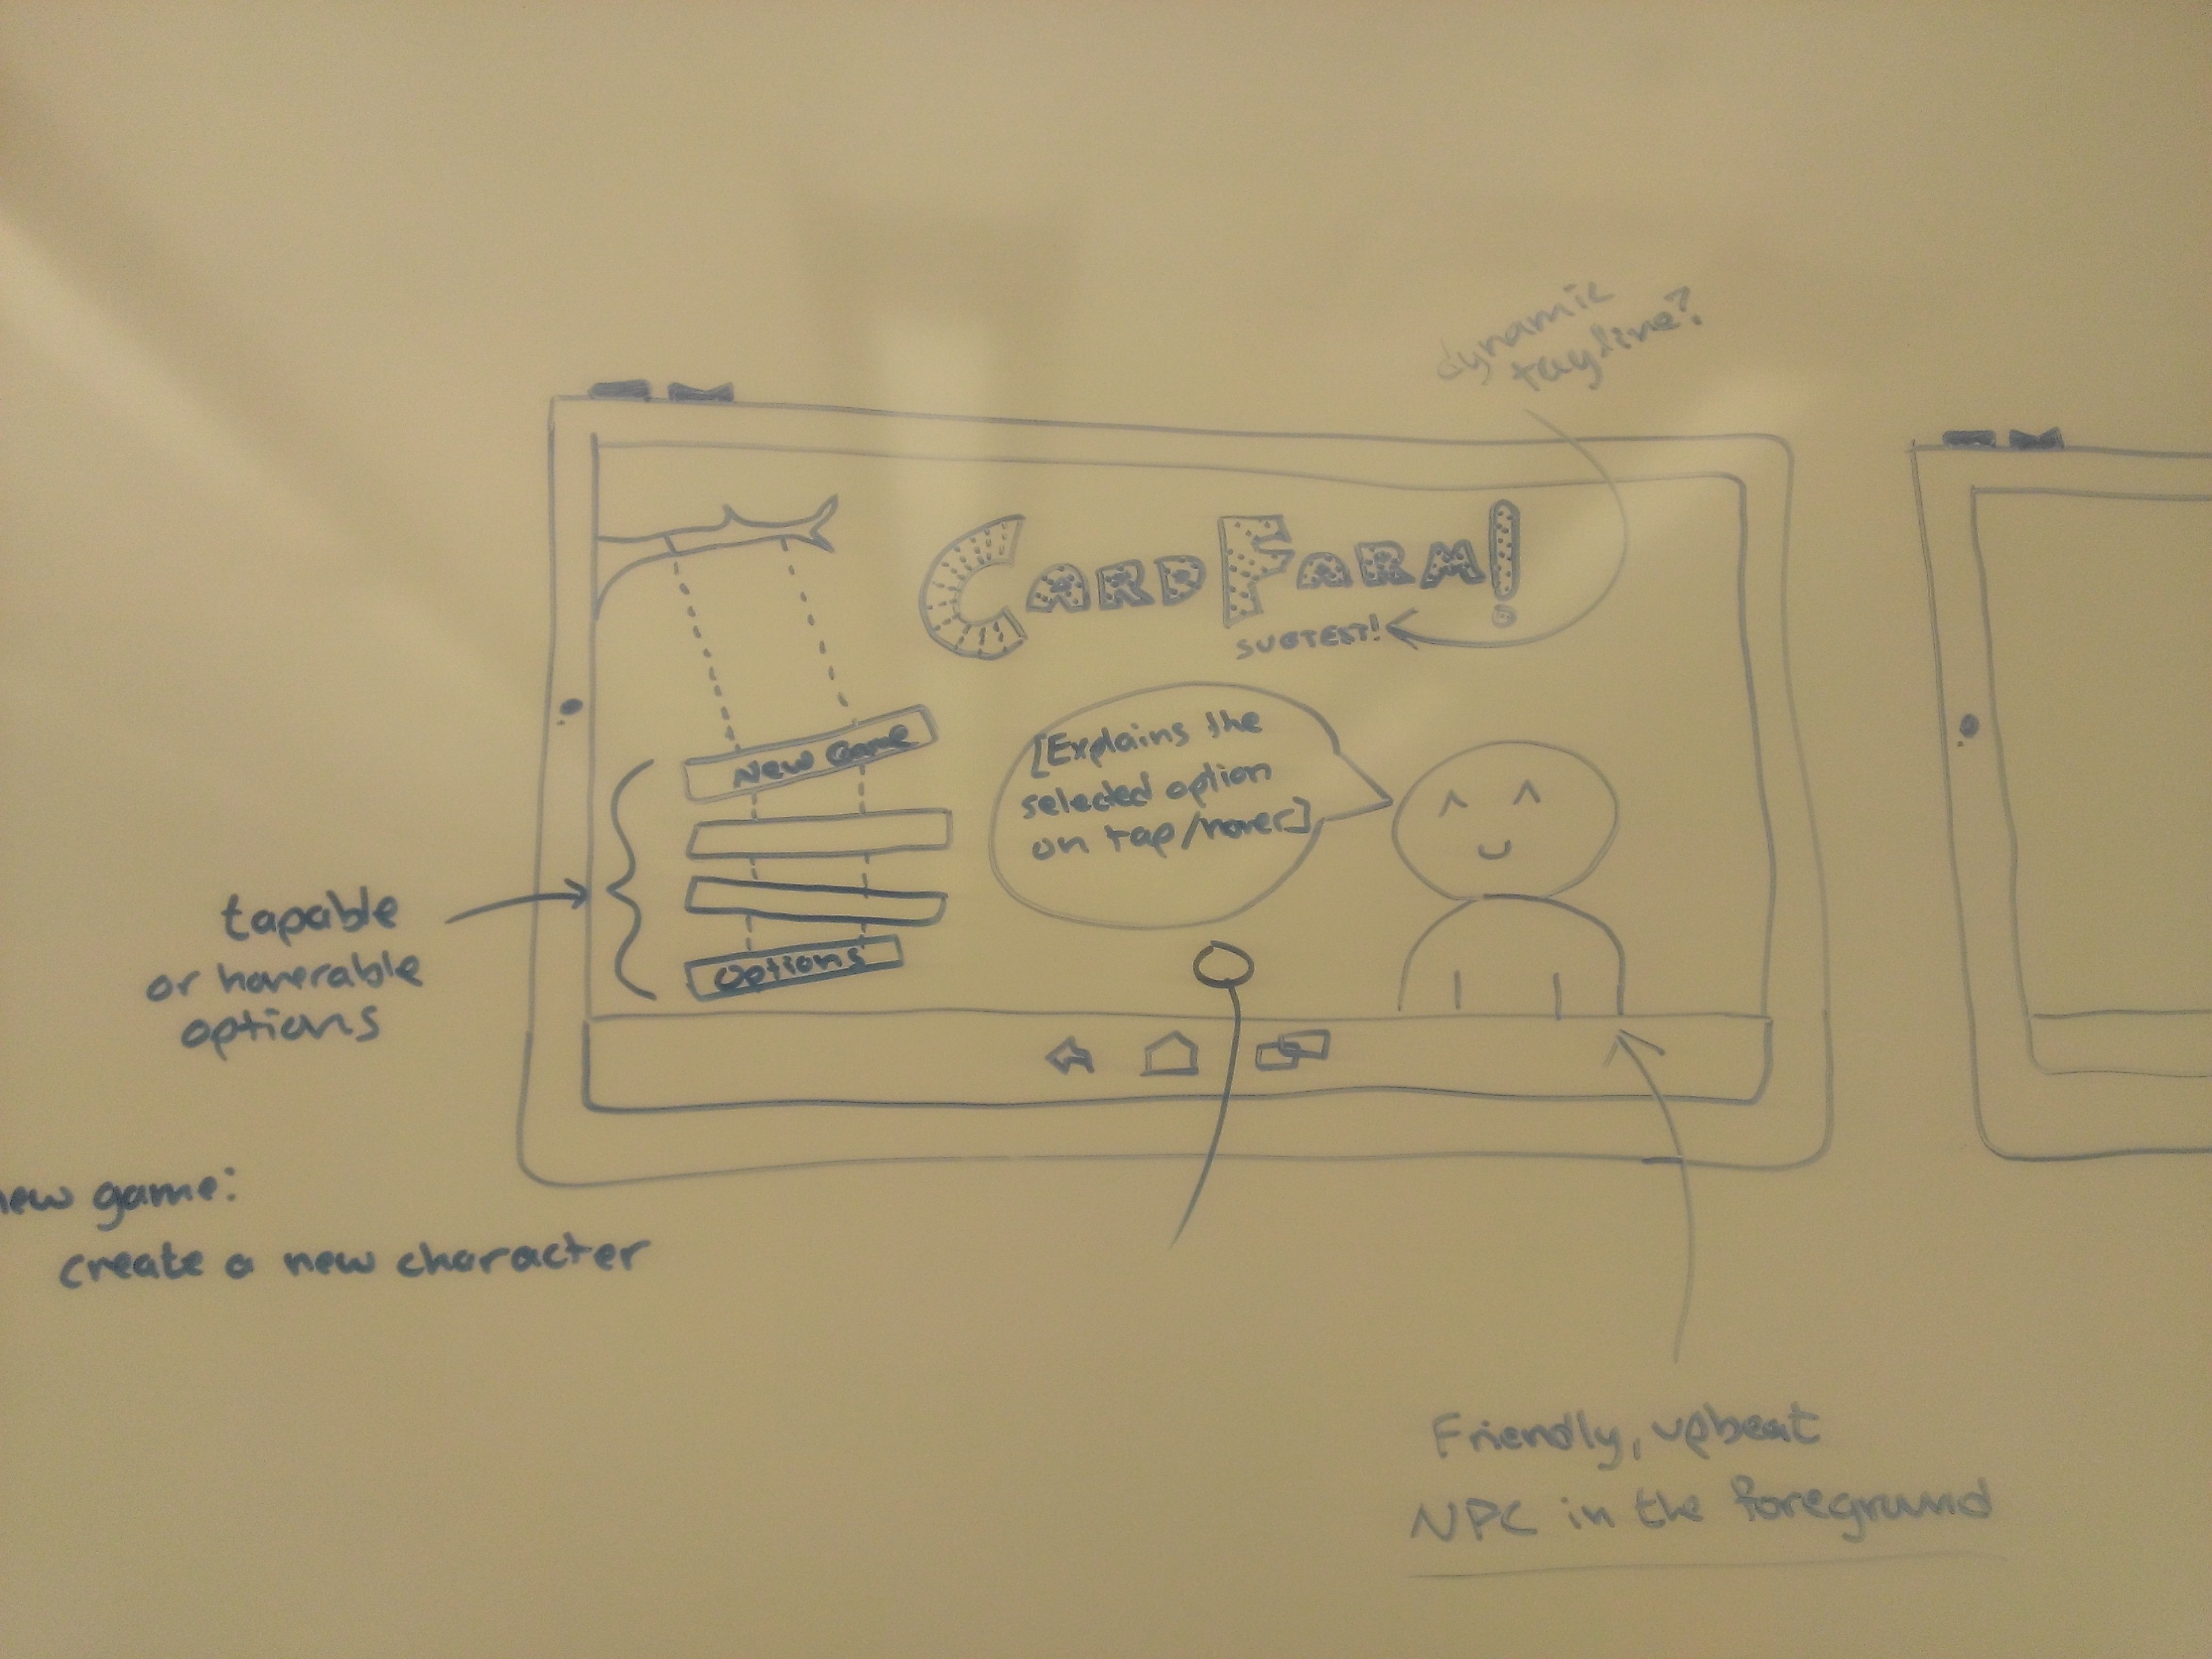 dynamic
tagline?
CARD FARM!
SUBTEXT!
New Game
[Explains the
selected option
on tap/hover]
Options
tapable
or hoverable
options
new game:
create a new character
Friendly, upbeat
NPC in the foreground